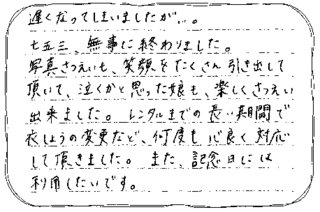 遅くなってしまいましたが…。
七五三、無事に終わりました。
写真さつえいも、笑顔をたくさん引き出して
頂いて、泣くかと思った娘も、楽しくさつえい
出来ました。レンタルまでの長い期間で
衣しょうの変更など、何度も心良く対応
して頂きました。また、記念日には
利用したいです。